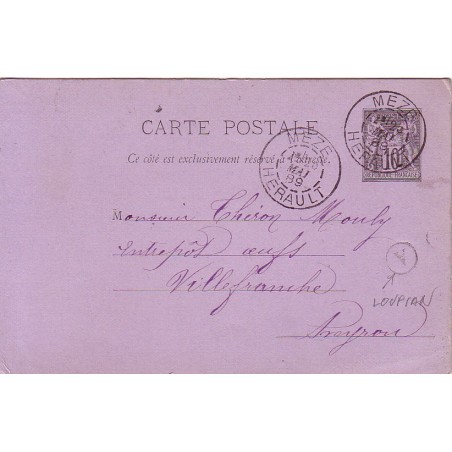 CARTE POSTALE
Ce côté est exclusivement réservé à l'adresse.
MEZE
MAI
89
HERAULT
MEZE
89
HERAULT
10
REPUBLIQUE FRANÇAISE
Monsieur Théron Mouly
entrepôt œufs
Villefranche
Aveyron
A
LOUPIAN